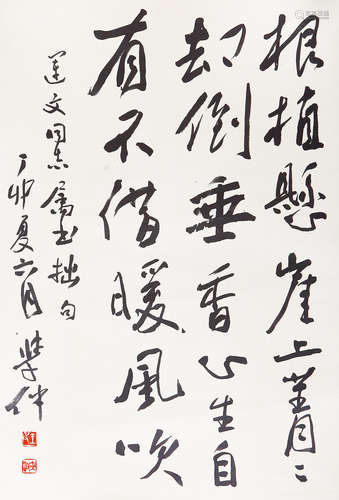 根植懸崖上菁々
却倒垂香心生自
有不借暖風吹
蓮文同志屬书拙句
丁卯夏六月學仲